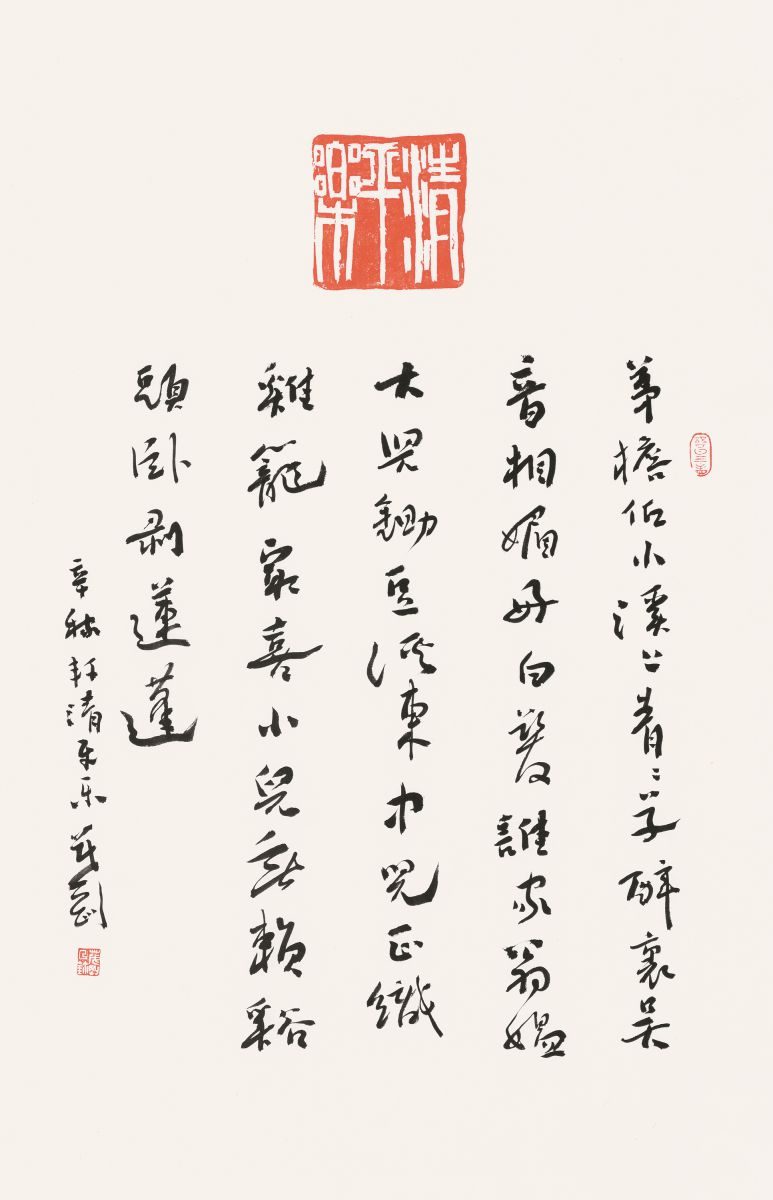 清平樂
茅檐低小溪上青〻草醉裏吴
音相媚好白髮誰家翁媪
大兒鋤豆溪東中兒正織
雞籠最喜小兒無賴谿
頭卧剥蓮蓬
辛稼軒清平乐